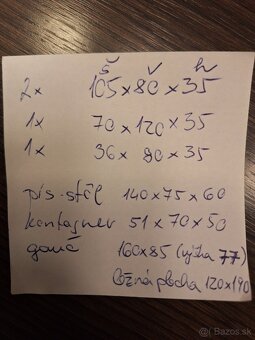 š v h
2x 105 x 80 x 35
1x 70 x 120 x 35
1x 36 x 80 x 35
pís. stôl 140 x 75 x 60
kontajner 51 x 70 x 50
gauč 160 x 85 (výška 77)
ložná plocha 120x190
bazar.sk